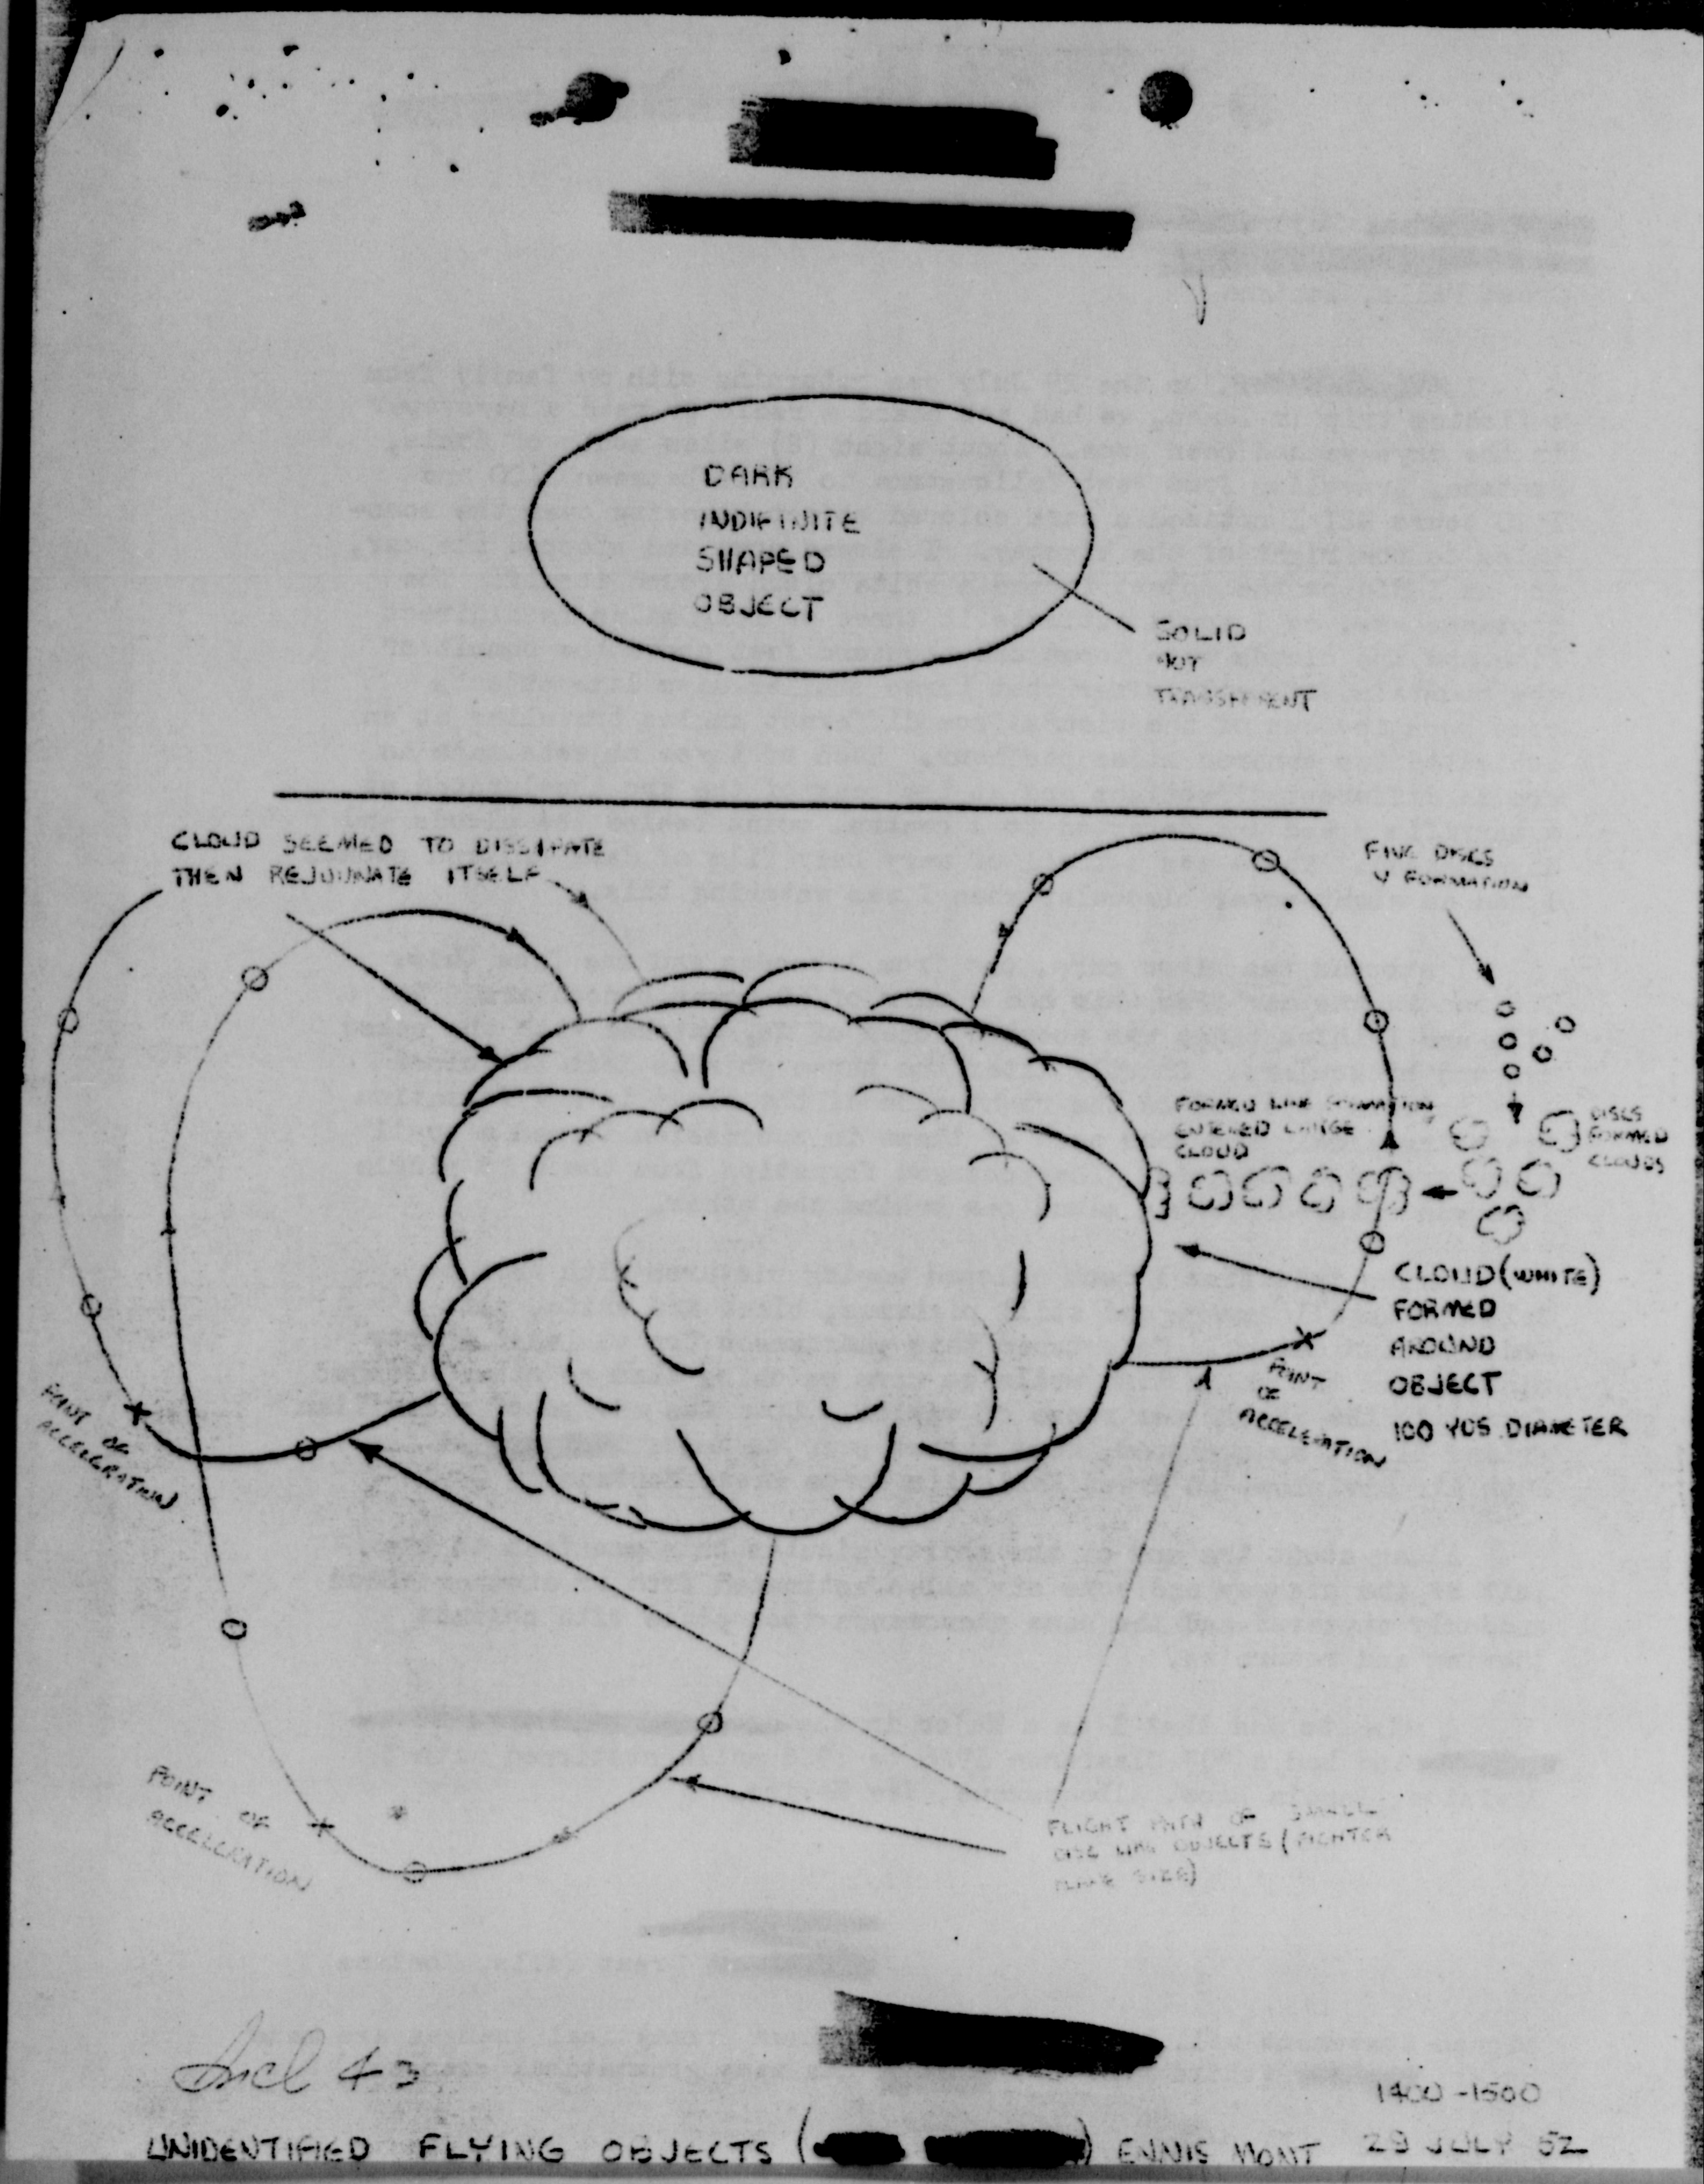 DARK
INDIFINITE
SHAPED
OBJECT
SOLID
NOT
TRANSPARENT
CLOUD SEEMED TO DISSIPATE
THEN REJUUNATE ITSELF
FIVE DISCS
V FORMATION
FORMED LINE FORMATION
ENTERED LARGE
CLOUD
DISCS
FORMED
CLOUDS
CLOUD (WHITE)
FORMED
AROUND
OBJECT
100 YDS. DIAMETER
POINT
OF
ACCELERATION
POINT
OF
ACCELERATION
POINT
OF
ACCELERATION
FLIGHT PATH OF SMALL
DISC LIKE OBJECTS (FIGHTER
PLANE SIZE)
Incl 43
1400-1500
UNIDENTIFIED FLYING OBJECTS ( ) ENNIS MONT 29 JULY 52